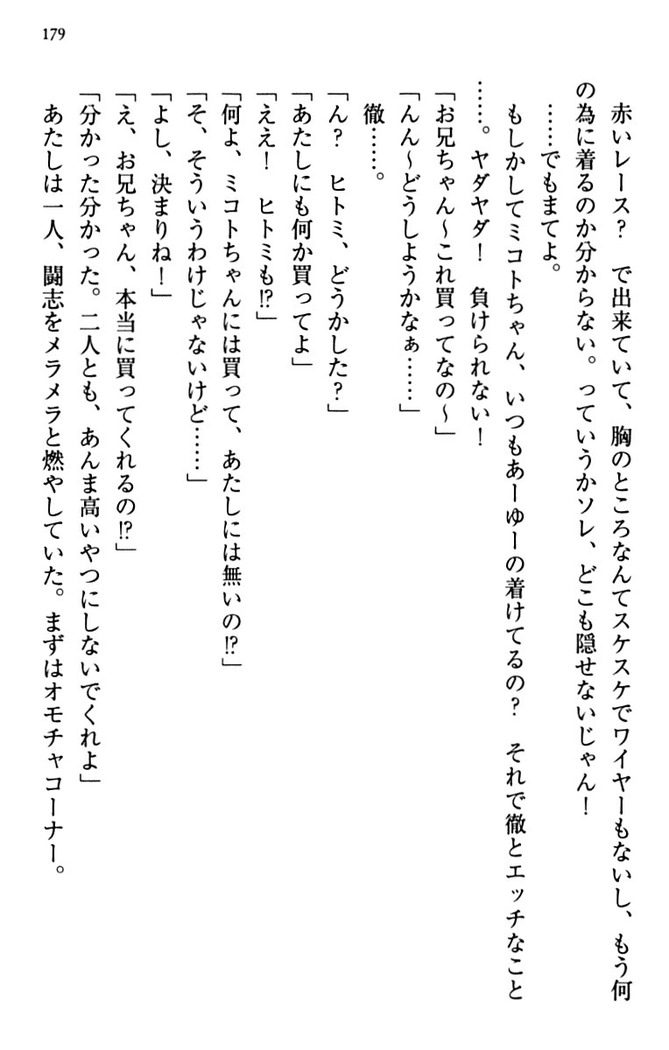 179
　赤いレース？　で出来ていて、胸のところなんてスケスケでワイヤーもないし、もう何
の為に着るのか分からない。っていうかソレ、どこも隠せないじゃん！
　……でもまてよ。
　もしかしてミコトちゃん、いつもあーゆーの着けてるの？　それで徹とエッチなこと
……。ヤダヤダ！　負けられない！
「お兄ちゃん～これ買ってなの～」
「んん～どうしようかなぁ……」
　徹……。
「ん？　ヒトミ、どうかした？」
「あたしにも何か買ってよ」
「ええ！　ヒトミも!?」
「何よ、ミコトちゃんには買って、あたしには無いの!?」
「そ、そういうわけじゃないけど……」
「よし、決まりね！」
「え、お兄ちゃん、本当に買ってくれるの!?」
「分かった分かった。二人とも、あんま高いやつにしないでくれよ」
　あたしは一人、闘志をメラメラと燃やしていた。まずはオモチャコーナー。